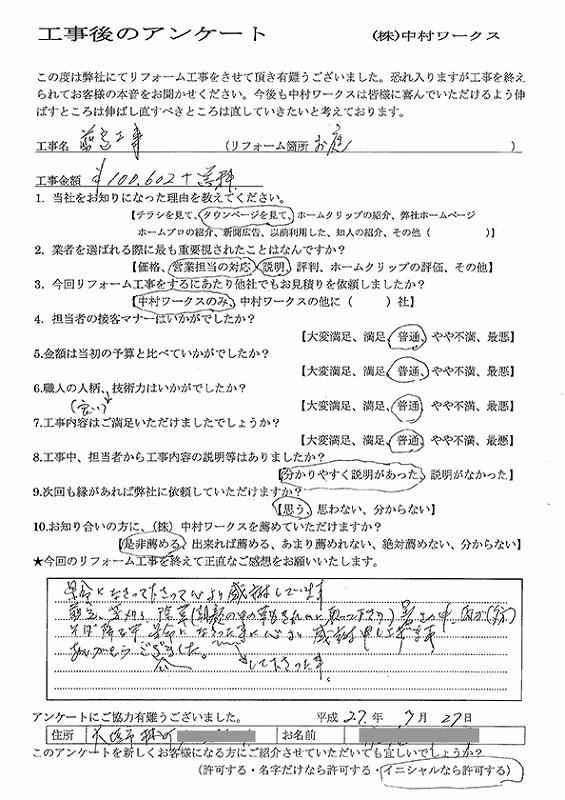 工事後のアンケート (株)中村ワークス
この度は弊社にてリフォーム工事をさせて頂き有難うございました。恐れ入りますが工事を終え
られてお客様の本音をお聞かせください。今後も中村ワークスは皆様に喜んでいただけるよう伸
ばすところは伸ばし直すべきところは直していきたいと考えております。
工事名 剪定工事 (リフォーム箇所 お庭 )
工事金額 ¥100,602+
1. 当社をお知りになった理由を教えてください。
【チラシを見て、タウンページを見て、ホームクリップの紹介、弊社ホームページ
ホームプロの紹介、新聞広告、以前利用した、知人の紹介、その他( )】
2. 業者を選ばれる際に最も重要視されたことはなんですか?
【価格、営業担当の対応、説明、評判、ホームクリップの評価、その他】
3. 今回リフォーム工事をするにあたり他社でもお見積りを依頼しましたか?
【中村ワークスのみ、中村ワークスの他に( )社】
4. 担当者の接客マナーはいかがでしたか?
【大変満足、満足、普通、やや不満、最悪】
5.金額は当初の予算と比べていかがでしたか?
【大変満足、満足、普通、やや不満、最悪】
6.職人の人柄、技術力はいかがでしたか?
(良い) 【大変満足、満足、普通、やや不満、最悪】
7.工事内容はご満足いただけましたでしょうか?
【大変満足、満足、普通、やや不満、最悪】
8.工事中、担当者から工事内容の説明等はありましたか?
【分かりやすく説明があった、説明がなかった】
9.次回も縁があれば弊社に依頼していただけますか?
【思う、思わない、分からない】
10.お知り合いの方に、(株)中村ワークスを薦めていただけますか?
【是非薦める、出来れば薦める、あまり薦めれない、絶対薦めない、分からない】
★今回のリフォーム工事を終えて正直なご感想をお願いいたします。
なさって下さって心より感謝しています
剪定、草刈り、除草
心より感謝申し上げます
ありがとうございました。
して下さった事
アンケートにご協力有難うございました。 平成 27 年 7 月 27 日
住所 大阪市 お名前
このアンケートを新しくお客様になる方にご紹介させていただいても宜しいでしょうか?
(許可する・名字だけなら許可する・イニシャルなら許可する)